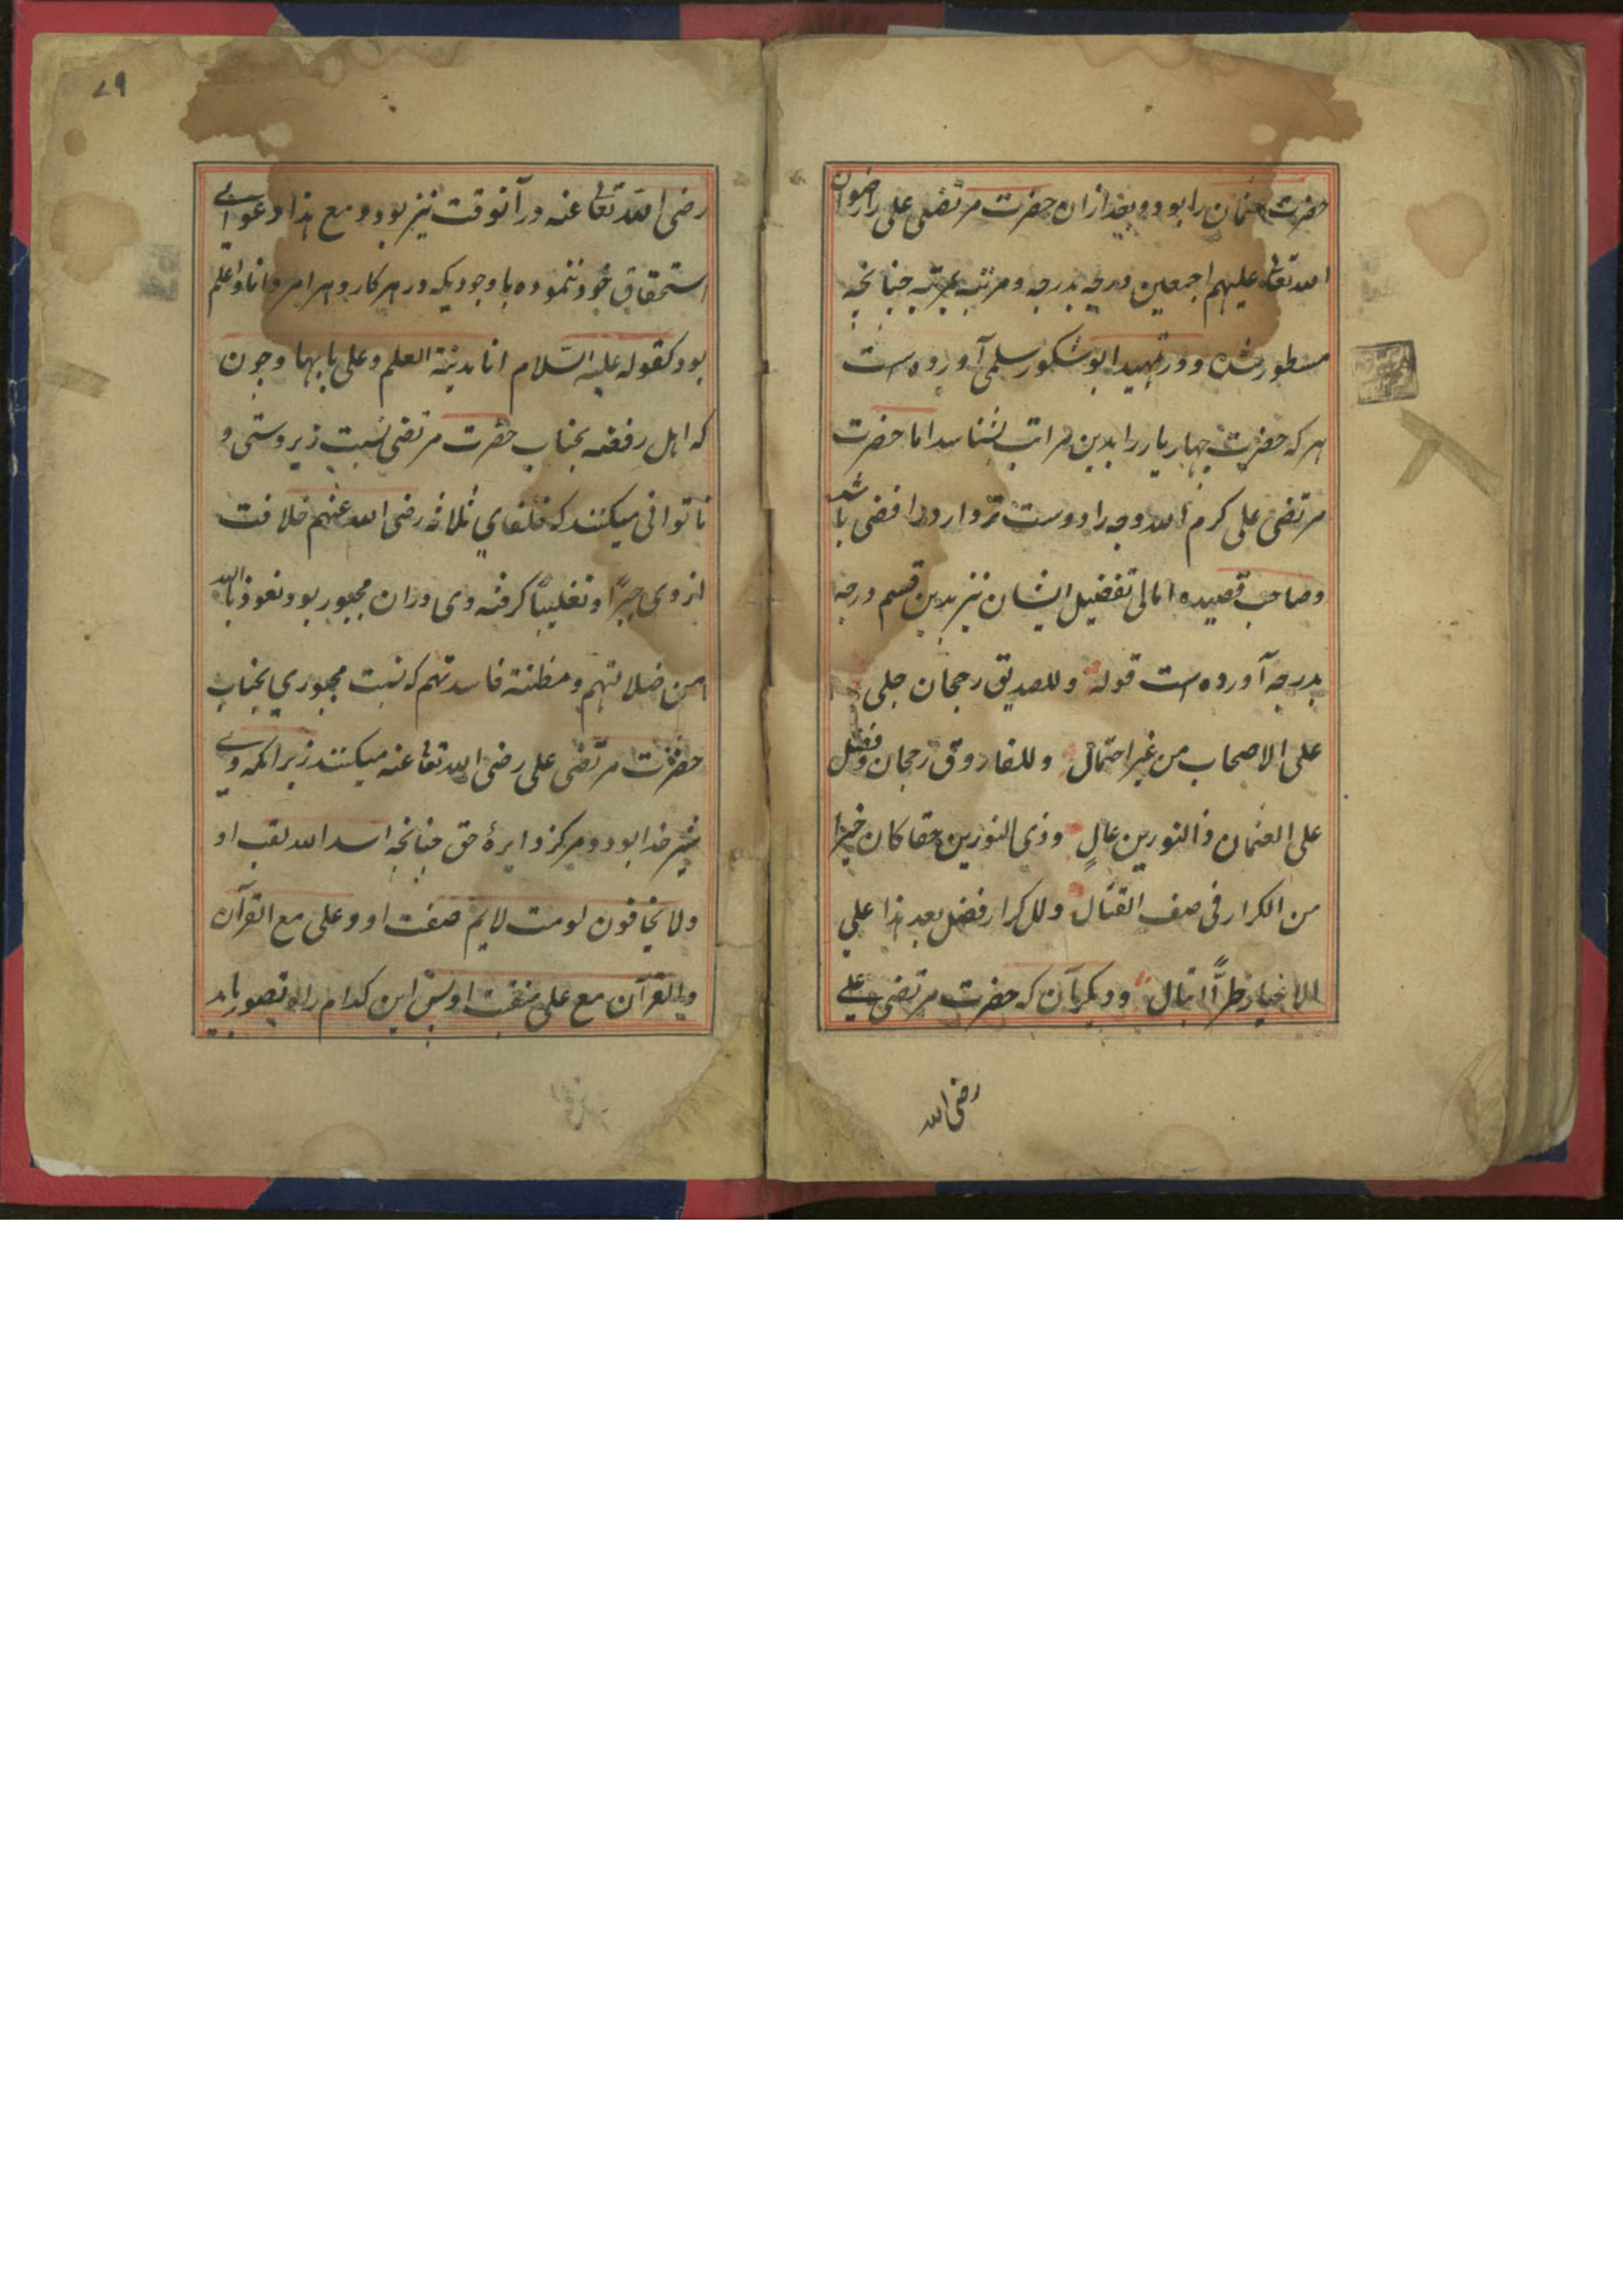 حضرت عثمان را بود و بعد ازان حضرت مرتضی علی را رضوان
الله تعالی علیهم اجمعین درجه بدرجه و مرتبه بمرتبه چنانچه
مسطور شده و در تمهید ابو شکور سلمی آورده است
هر که حضرت چهار یار را بدین مراتب بشناسد اما حضرت
مرتضی علی کرم الله وجه را دوست تر دارد رافضی باشد
و صاحب قصیده امالی تفضیل ایشان نیز بدین قسم درجه
بدرجه آورده است قوله وللصدیق رجحان جلی
علی الاصحاب من غیر احتمال وللفاروق رجحان وفضل
علی العثمان ذالنورین عالٍ وذی النورین حقا کان خیرا
من الکرار فی صف القتال وللکرار فضل بعد هذا علی
الاغیار طرًّا لا تبال و دیگر آن که حضرت مرتضی علی
رضی الله
۷۹
رضی الله تعالی عنه در آنوقت نیز بود و مع هذا دعوای
استحقاق خود ننموده باوجودیکه در هر کار و هر امر دانا و اعلم
بود کقوله علیه السّلام انا مدینة العلم وعلی بابها و چون
که اهل رفضه بجناب حضرت مرتضی نسبت زیردستی و
ناتوانی میکنند که خلفای ثلاثه رضی الله عنهم خلافت
از وی جبرًا و تغلیبًا گرفته وی دران مجبور بود نعوذ بالله
من ضلالتهم و مظنة فاسدتهم که نسبت مجبوری بجناب
حضرت مرتضی علی رضی الله تعالی عنه میکنند زیرا که وی
شیر خدا بود و مرکز دایرهٔ حق چنانچه اسد الله لقب او
ولا یخافون لومت لایم صفت او و علی مع القرآن
والقرآن مع علی منقبت او پس این کدام را تصور باید